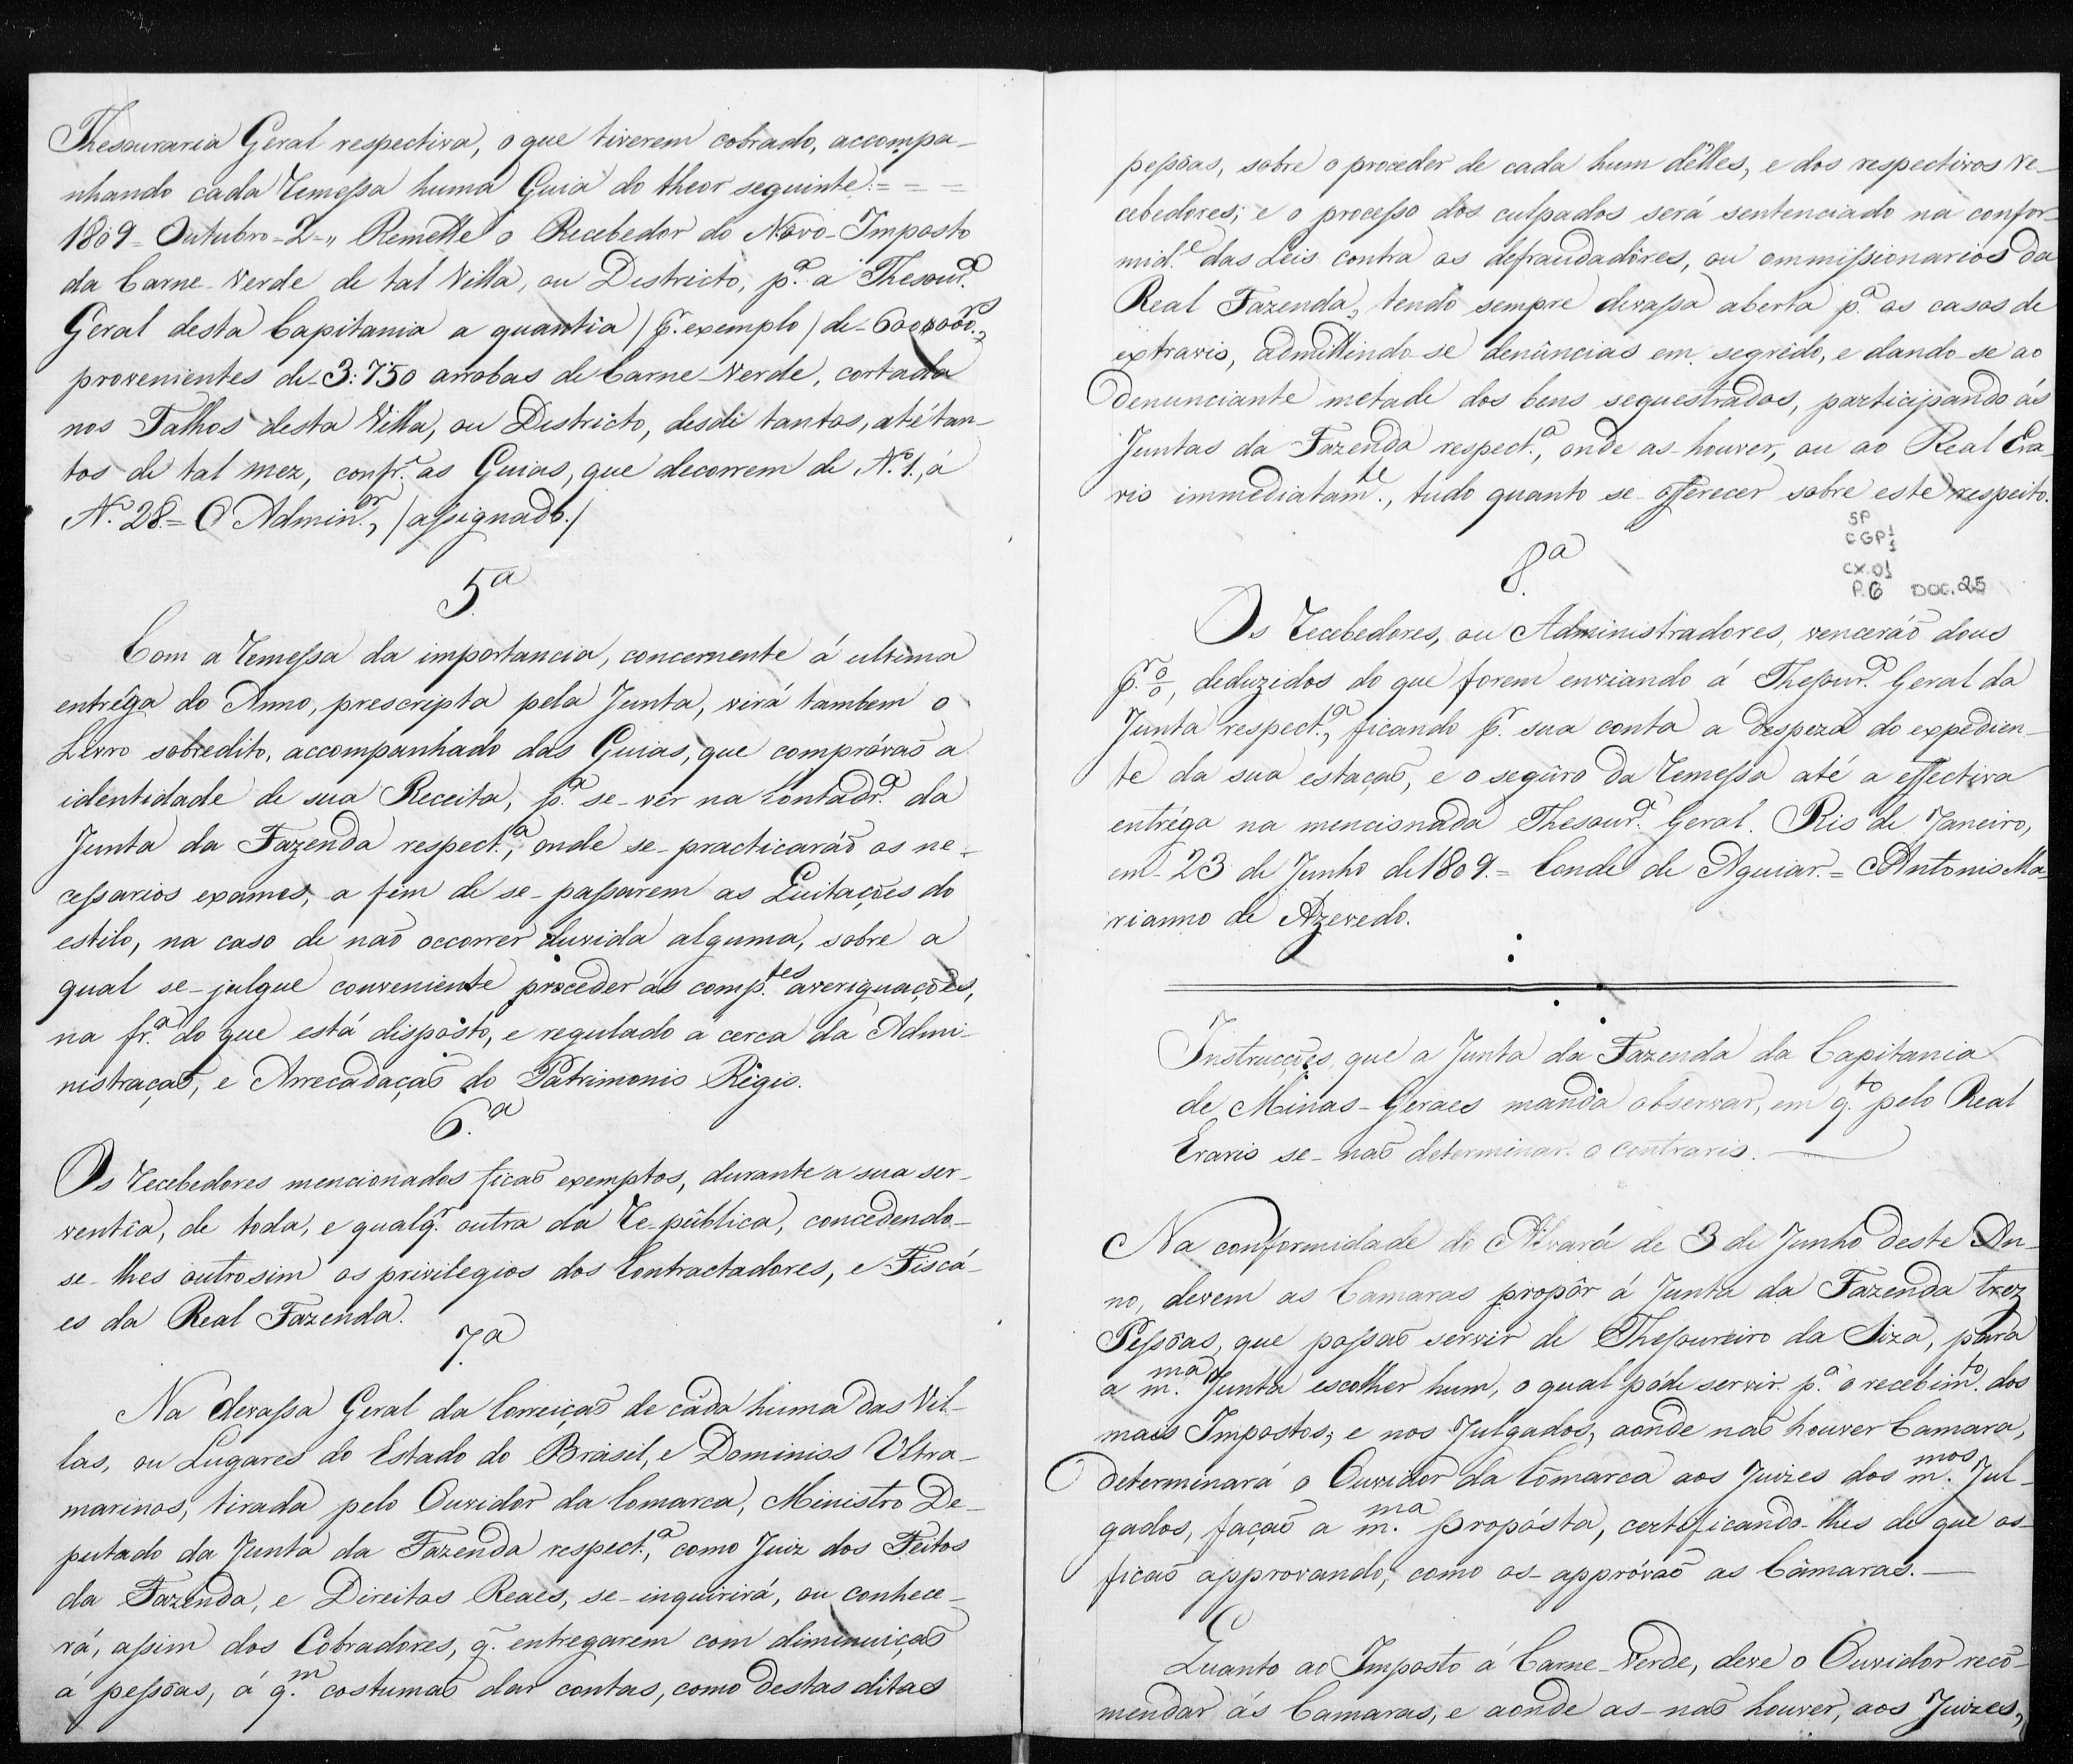 Thesouraria Geral respectiva, o que tiverem cobrado, accompa-
nhando cada Remessa huma Guia do theor seguinte:= = =
1809= Outubro=2=,, Remette o Recebedor do Novo-Imposto
da Carne-Verde de tal Villa, ou Districto, p.ª a Thesour.ª
Geral desta Capitania a quantia (p.r exemplo) de-600$000rs.,
provenientes de-3:750 arrobas de Carne-Verde, cortada
nos Talhos desta Villa, ou Districto, desde tantos, até tan-
tos de tal mez, confr.e as Guias, que decorrem de N.º 1., á
N.º 28.= O Admin.or, (assignado.)
5.ª
Com a Remessa da importancia, concernente á ultima
entrêga do Anno, prescripta pela Junta, virá tambem o
Livro sobredito, accompanhado das Guias, que compróvaõ a
identidade de sua Receita, p.ª se-vêr na Contadr.ª da
Junta da Fazenda respect.ª, onde se-practicaráõ os ne-
cessarios exames, a fim de se-passarem as Quitações do
estilo, na caso de naõ occorrer duvida alguma, sobre a
qual se-julgue conveniente proceder ás comp.tes averiguações,
na fr.ª do que está disposto, e regulado á cerca da Admi-
nistraçaõ, e Arrecadaçaõ do Patrimonio Régio.
6.ª
Os Recebedores mencionados ficaõ exemptos, durante a sua ser-
ventîa, de toda, e qualq.r outra da Re-pûblica, concedendo-
se-lhes outrosim os privilegios dos Contractadores, e Fiscá-
es da Real Fazenda.
7.ª
Na devassa Geral da Correiçaõ de cada huma das Vil-
las, ou Lugares do Estado do Brasil, e Dominios Ultra-
marinos, tirada pelo Ouvidor da Comarca, Ministro De-
putado da Junta da Fazenda respect.ª, como Juiz dos Feitos
da Fazenda, e Direitos Reaes, se-inquirirá, ou conhece-
rá, assim dos Cobradores, q.̃ entregarem com diminuiçaõ
á pessõas, á q.m costumaõ dar contas, como destas ditas
pessõas, sobre o proceder de cada hum dêlles, e dos respectivos re-
cebedores; e o processo dos culpados será sentenciado na confor-
mid.e das Leis contra os defraudadôres, ou ommissionarios da
Real Fazenda, tendo sempre devassa aberta p.ª os casos de
extravio, admittindo-se denûncias em segrêdo, e dando-se ao
Denunciante metade dos bens sequestrados, participando ás
Juntas da Fazenda respect.ª, onde as-houver, ou ao Real Era-
rio immediatam.te, tudo quanto se-offerecer sobre este respeito.
SP
CGP1
1
CX.01
P.6 DOC.25
8.ª
Os Recebedores, ou Administradores, venceráõ dous
p.r %, deduzidos do que forem enviando á Thesour.ª Geral da
Junta respect.ª, ficando p.r sua conta a despeza do expedien-
te da sua estaçaõ, e o segûro da Remessa até a effectiva
entréga na mencionada Thesour.ª Geral. Rio de Janeiro,
em-23 de Junho de 1809.= Conde de Aguiar.= Antonio Ma-
rianno de Azevedo.
Instrucções, que a Junta da Fazenda da Capitania
de Minas-Geraes manda observar, em q.to pelo Real
Erario se-naõ determinar o contrario.
Na conformidade do Alvará de 3 de Junho deste An-
no, devem as Camaras propôr á Junta da Fazenda trez
Pessõas, que possaõ servir de Thesoureiro da Siza, para
a m.ma Junta escolher hum, o qual póde servir p.ª o recebim.to dos
mais Impostos; e nos Julgados, aonde naõ houver Camara,
determinará o Ouvidor da Cômarca aos Juizes dos m.mos Jul-
gados, façaõ a m.ma propósta, certificando-lhes de que os-
ficaõ approvando, como os-appróvaõ as Câmaras.
Quanto ao Imposto á Carne-Verde, deve o Ouvidor recõ-
mendar ás Camaras, e aonde as-naõ houver, aos Juizes,